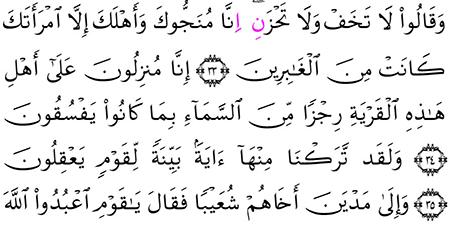 وَقَالُوا۟ لَا تَخَفْ وَلَا تَحْزَنِ اِنَّا مُنَجُّوكَ وَأَهْلَكَ إِلَّا ٱمْرَأَتَكَ
كَانَتْ مِنَ ٱلْغَـٰبِرِينَ ٣٣ إِنَّا مُنزِلُونَ عَلَىٰٓ أَهْلِ
هَـٰذِهِ ٱلْقَرْيَةِ رِجْزًا مِّنَ ٱلسَّمَآءِ بِمَا كَانُوا۟ يَفْسُقُونَ
٣٤ وَلَقَد تَّرَكْنَا مِنْهَآ ءَايَةًۢ بَيِّنَةً لِّقَوْمٍ يَعْقِلُونَ
٣٥ وَإِلَىٰ مَدْيَنَ أَخَاهُمْ شُعَيْبًا فَقَالَ يَـٰقَوْمِ ٱعْبُدُوا۟ ٱللَّهَ